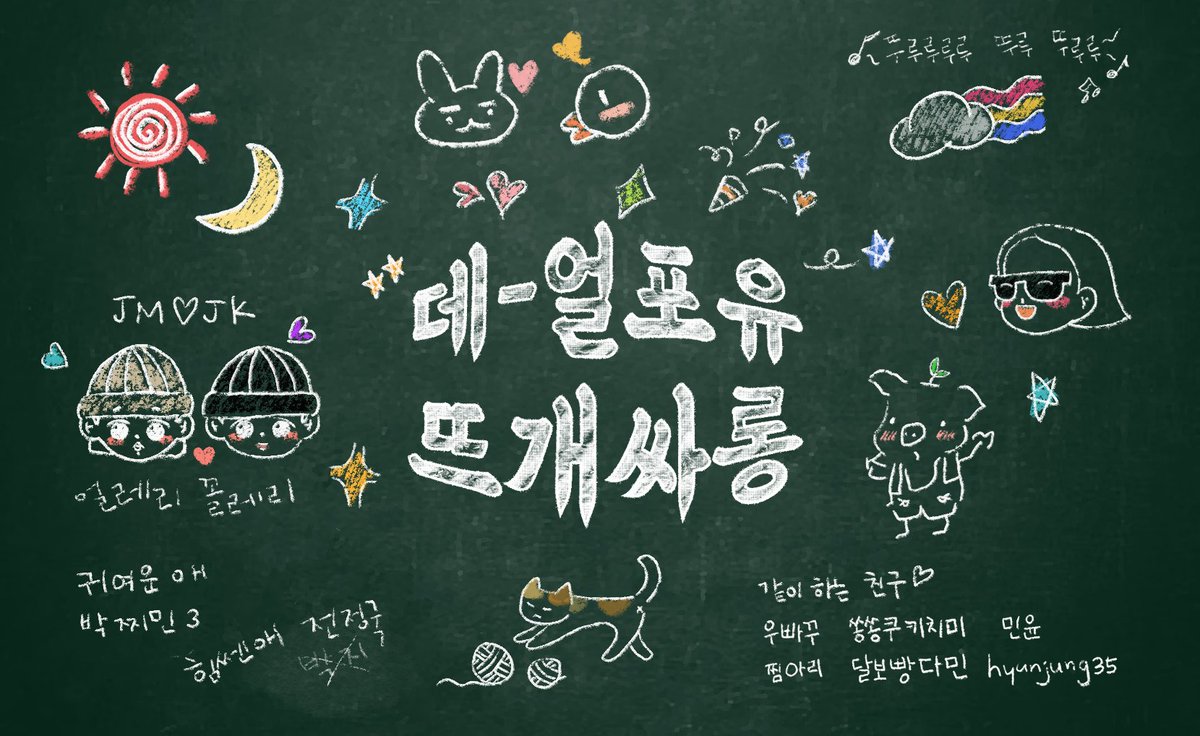 뚜루루루루 뚜루 뚜루루~
데-얼포유
뜨개싸롱
JM♡JK
얼레리 꼴레리
귀여운 애
박찌민 3
힘쎈애 전정국
박지
같이 하는 친구♡
우빠꾸 쏭쏭쿠키치미 민윤
찜아리 달보빵다민 hyunjung35